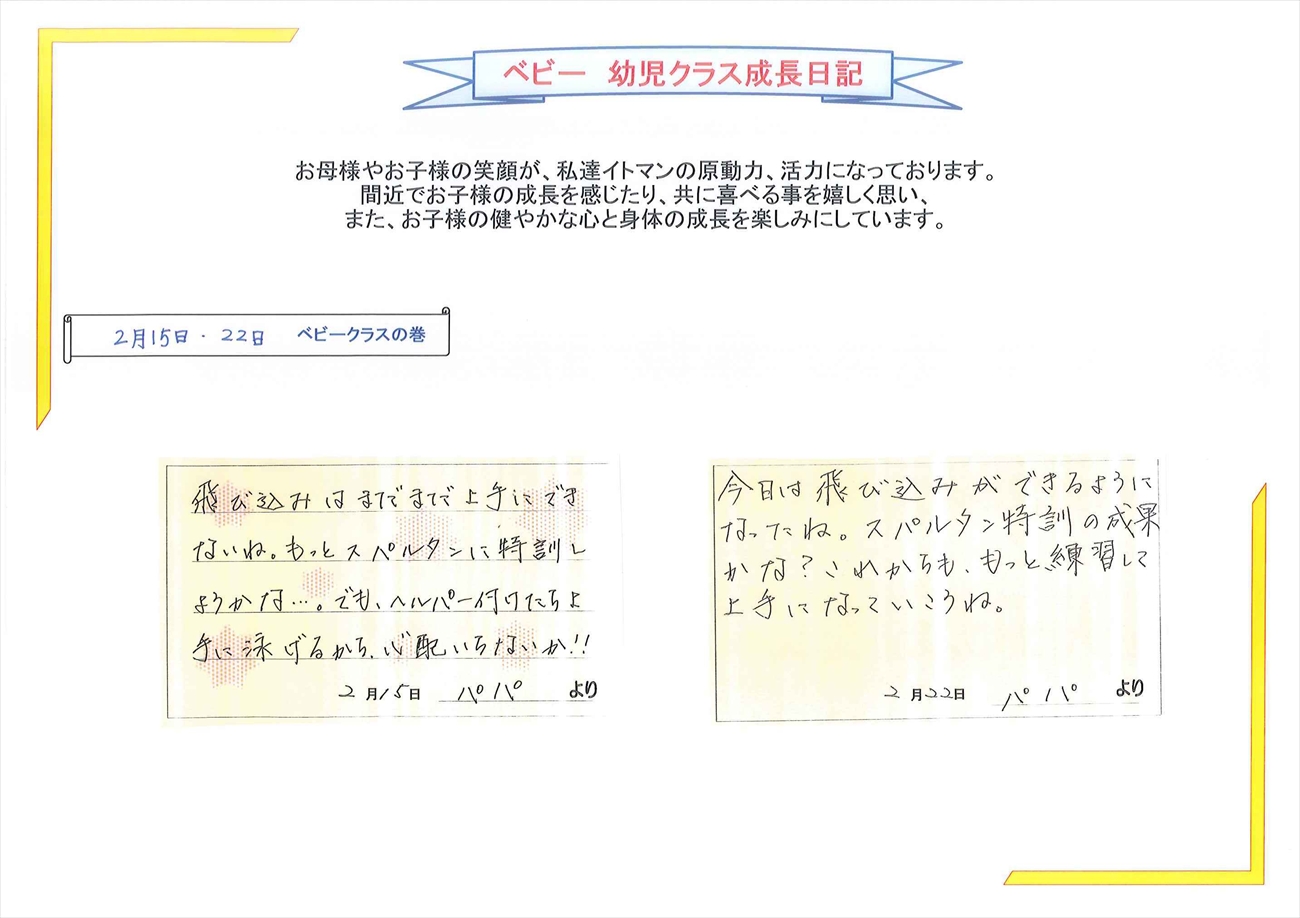 ベビー　幼児クラス成長日記
お母様やお子様の笑顔が、私達イトマンの原動力、活力になっております。
間近でお子様の成長を感じたり、共に喜べる事を嬉しく思い、
また、お子様の健やかな心と身体の成長を楽しみにしています。
2月15日・22日　ベビークラスの巻
飛び込みはまだまだ上手にでき
ないね。もっとスパルタンに特訓し
ようかな…。でも、ヘルパー付けたら上
手に泳げるから、心配いらないか!!
2月15日　パパ　より
今日は飛び込みができるように
なったね。スパルタン特訓の成果
かな?これからも、もっと練習して
上手になっていこうね。
2月22日　パパ　より